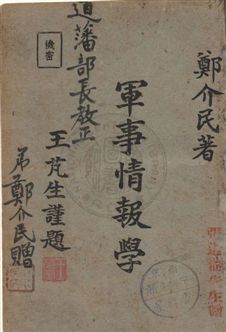 鄭介民著
軍事情報學
王芃生謹題
道藩部長教正
弟鄭介民贈
機密